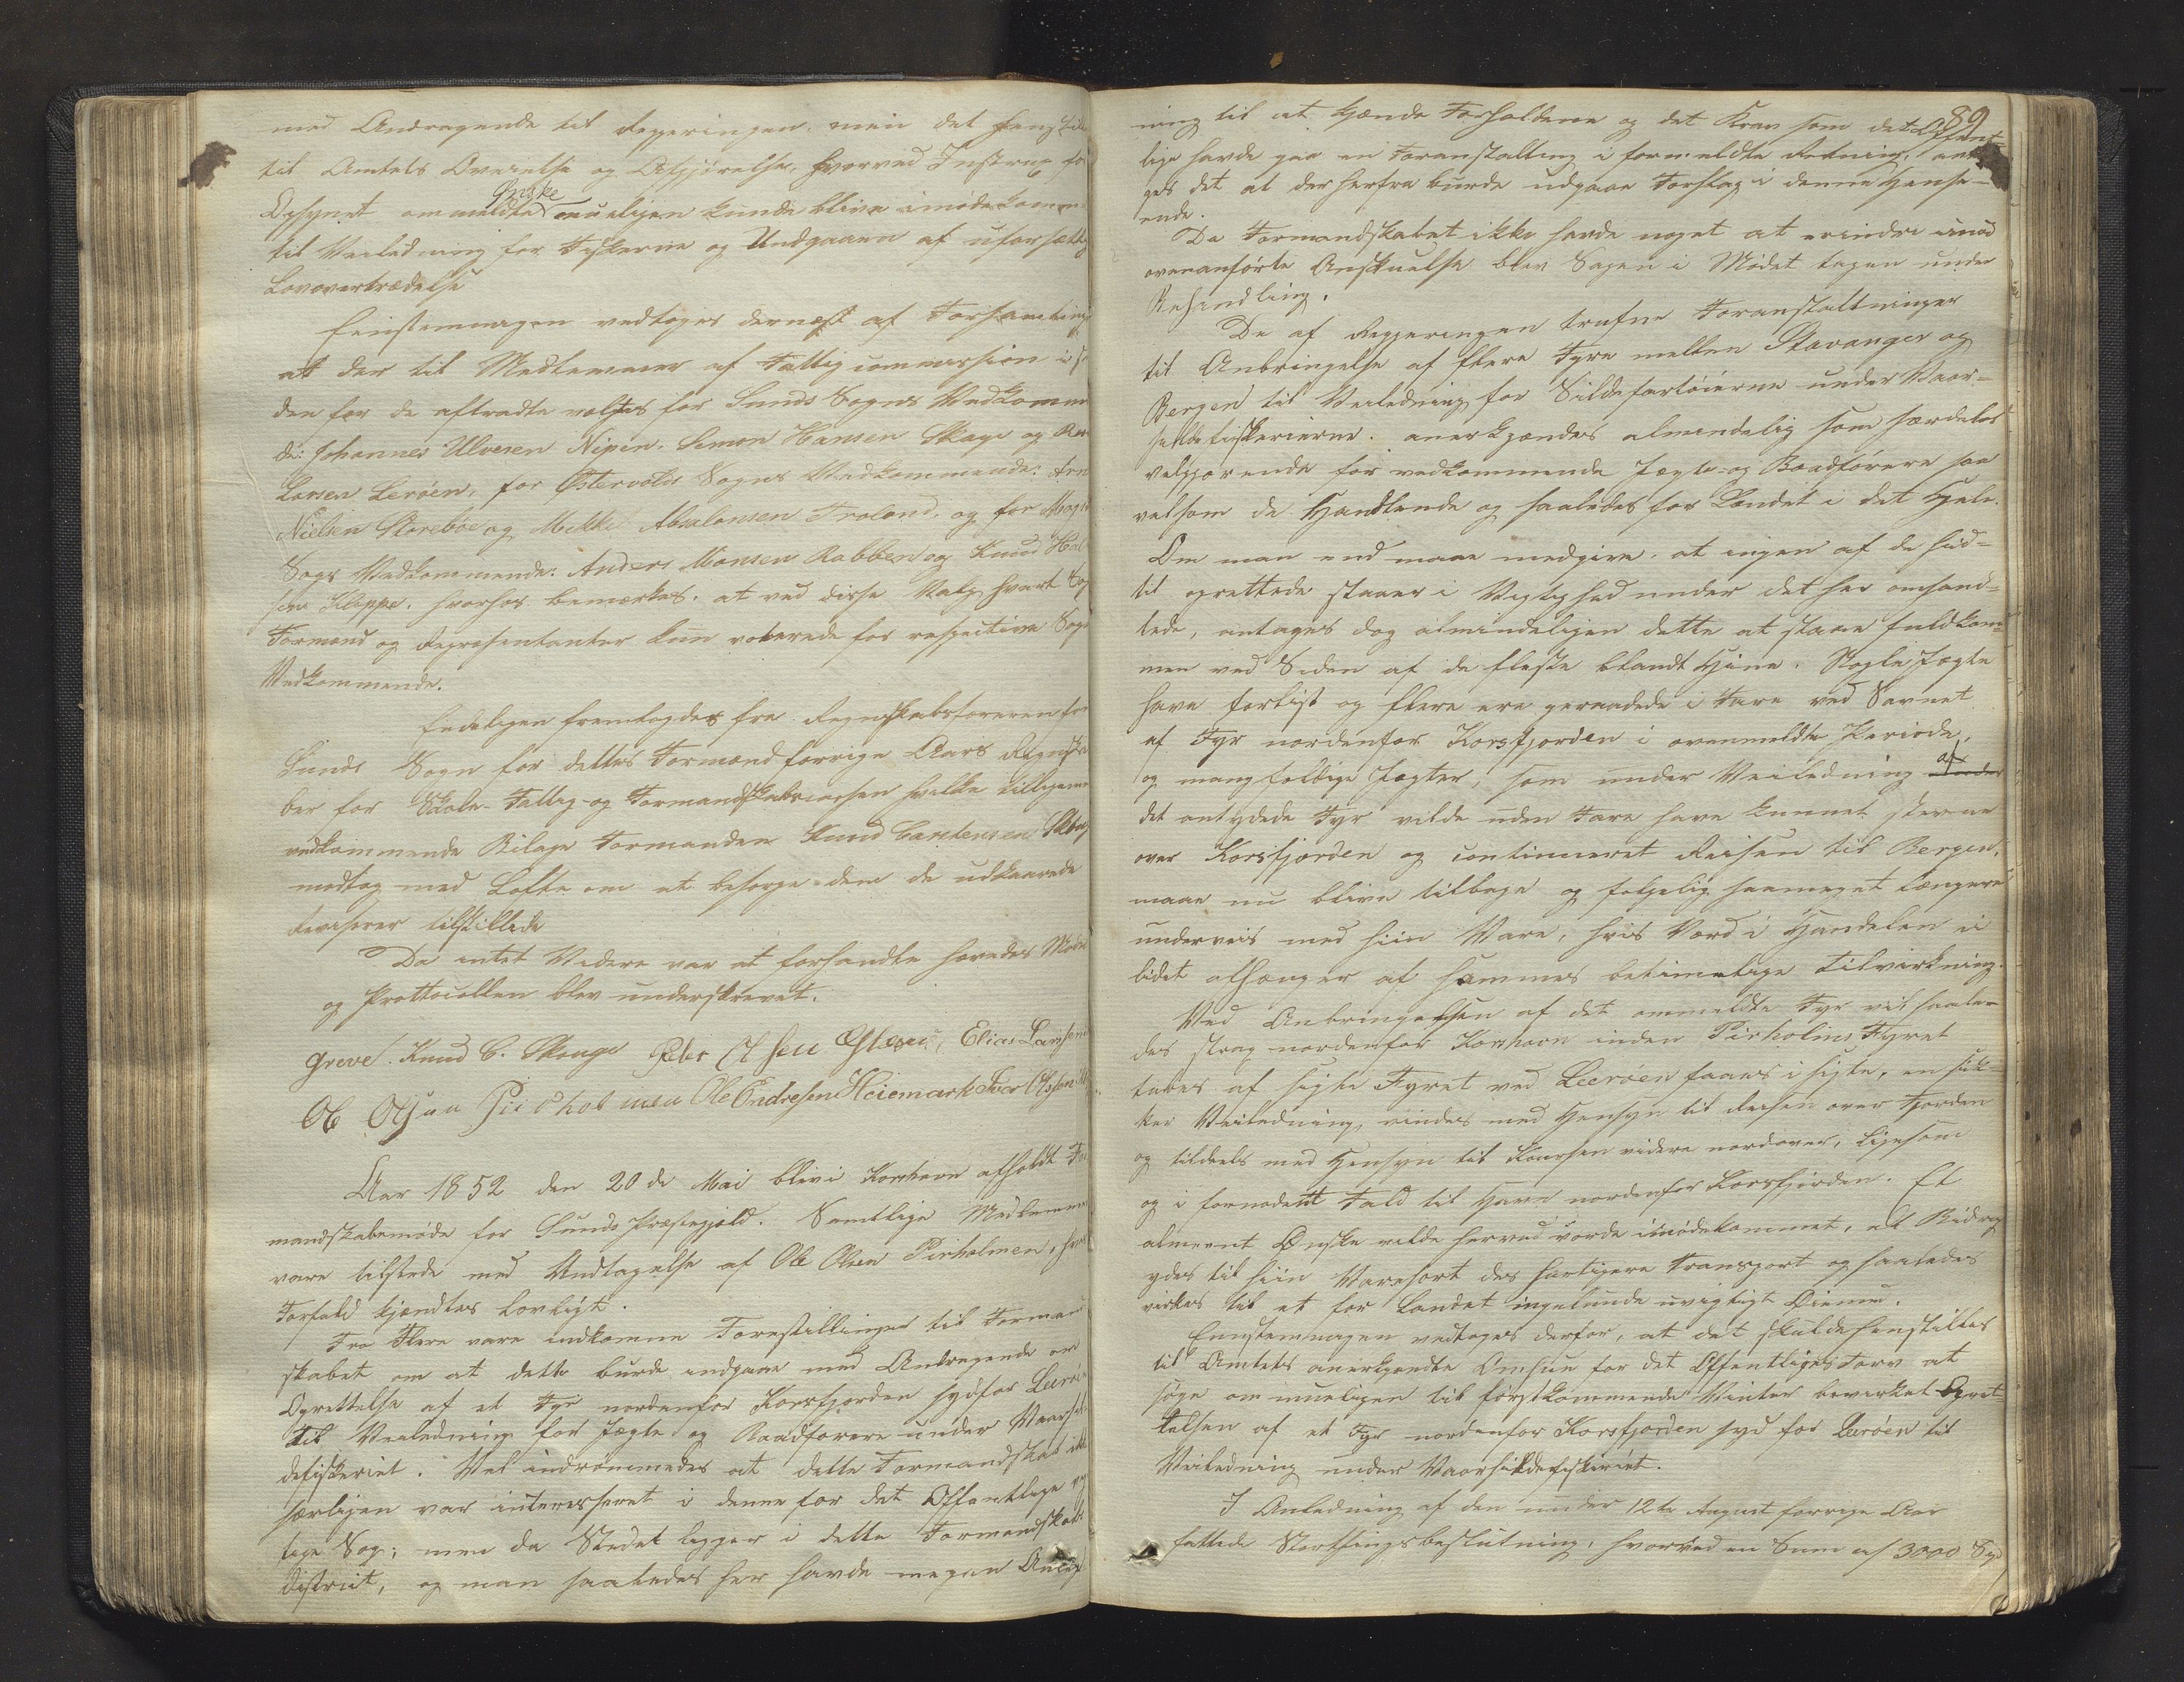 med Andragende til Regjeringen, men det
til Amtets Overveielse og Afgjørelse, hvorved
Opsynet ommeldte Ønske mueligen kunde blive imødekommet
til Veiledning for Fiskerne og Undgaaen af uforsætlig
Lovovertrædelse
Eenstemmigen vedtoges dernæst af Forsamling
at der til Medlemmer af Fattigcommission i
den for de aftraadte valgtes for Sunds Sogns Vedkommen
de: Johannes Ulvesen Nipen, Simon Hansen Skage og
Larsen Lerøen, for Østervolds Sogns Vedkommende:
Nielsen Storebøe og Mikkel Absalonsen Troland, og for Møgst
Sogns Vedkommende: Anders Monsen Rabben og Knud Hal
sen Kleppe, hvorhos bemærkes, at ved disse Valg hvert Sogns
Formænd og Repræsentanter kun voterede for respective Sogns
Vedkommende.
Endeligen fremlagdes fra Regnskabsføreren for
Sunds Sogn for dettes Formænd forrige Aars Regnska
ber for Skole- Fattig- og Formandskabscassen hvilke tilligemed
vedkommende Bilage Formanden Knud Carstensen Skoug
modtog med Løfte om at besørge dem de udkaarede
Revisorer tilstillede
Da intet Videre var at forhandle hævedes Mødet
og Prottocollen blev underskrevet.
Greve. Knud C. Skouge Peder Olsen Elias Larsen
Ole Olsen Pirholmen Ole Endresen Høiemark Iver Olsson
Aar 1852 den 20de Mai blev i Korshavn afholdt For
mandskabsmøde for Sunds Præstegjeld. Samtlige Medlemmer
vare tilstede med Undtagelse af Ole Olsen Pirholmen, hvis
Forfald kjændtes lovligt.
Fra Flere vare indkomne Forestillinger til Formand
skabet om at dette burde indgaae med Andragende om
Oprettelse af et Fyr nordenfor Korsfjorden sydfor Leerøen
til Veiledning for Jægte og Baadførere under Vaarsil
defiskeriet. Vel indrømmedes at dette Formandskab ikke
særligen var interesseret i denne for det Offentlige vig
tige Sag; men da Stedet ligger i dette Formandskabs
District, og man saaledes her havde megen Anled
89
ning til at kjænde Forholdene og det Krav som det Offent-
lige havde paa en Foranstalting i formeldte Retning, anto
ges det at der herfra burde udgaae Forslag i denne Hense-
ende.
Da Formandskabet ikke havde noget at erindre imod
ovenanførte Anskuelse blev Sagen i Mødet tagen under
Behandling.
De af Regjeringen trufne Foranstaltninger
til Anbringelse af flere Fyre mellem Stavanger og
Bergen til Veiledning for Sildefartøierne under Vaar-
sildefiskerierne, anerkjændes almindelig som særdeles
velgjørende for vedkommende Jægte- og Baadførere saa
velsom de Handlende og saaledes for Landet i det Hele.
Om man end maae medgive, at ingen af de hid-
til oprettede staaer i Vigtighed under det her omhand-
lede, antages dog almindeligen dette at staae fuldkom-
men ved Siden af de fleste blandt Hine. Nogle Jægte
have forlist og flere ere geraadede i Fare ved Savnet
af Fyr nordenfor Korsfjorden i ovenmeldte Periode,
og mangfoldige Jægter, som under Veiledning af
det antydede Fyr vilde uden Fare have kunnet
over Korsfjorden og continueret Reisen til Bergen,
maae nu blive tilbage og følgelig saameget længere
underveis med hiin Vare, hvis Værd i Handelen ei
lidet afhænger af sammes betimelige Tilvirkning.
Ved Anbringelsen af det ommeldte Fyr vil saale-
des strax nordenfor Korshavn inden Pirholms Fyret
tabes af Sigte Fyret ved Leerøen faaes i Sigte, en sik-
ker Veiledning, vindes med Hensyn til Reisen over Fjorden
og tildeels med Hensyn til Koursen videre nordover, ligesom
og i fornødent Fald til Havn nordenfor Korsfjorden. Et
almeent Ønske vilde herved vorde imødekommet, et Bidrag
ydes til hiin Varesort des hurtigere Transport og saaledes
virkes til et for Landet ingenlunde uvigtigt Øiemed.
Eenstemmigen vedtoges derfor, at det skulde henstilles
til Amtets anerkjendte Omhue for det Offentliges Tarv at
søge om mueligen til førstkommende Vinter bevirket Opret-
telsen af et Fyr nordenfor Korsfjorden syd for Leerøen til
Veiledning under Vaarsildefiskeriet.
I Anledning af den under 12te August forrige Aar
fattede Storthingsbeslutning, hvorved en Sum af 3000 Spd